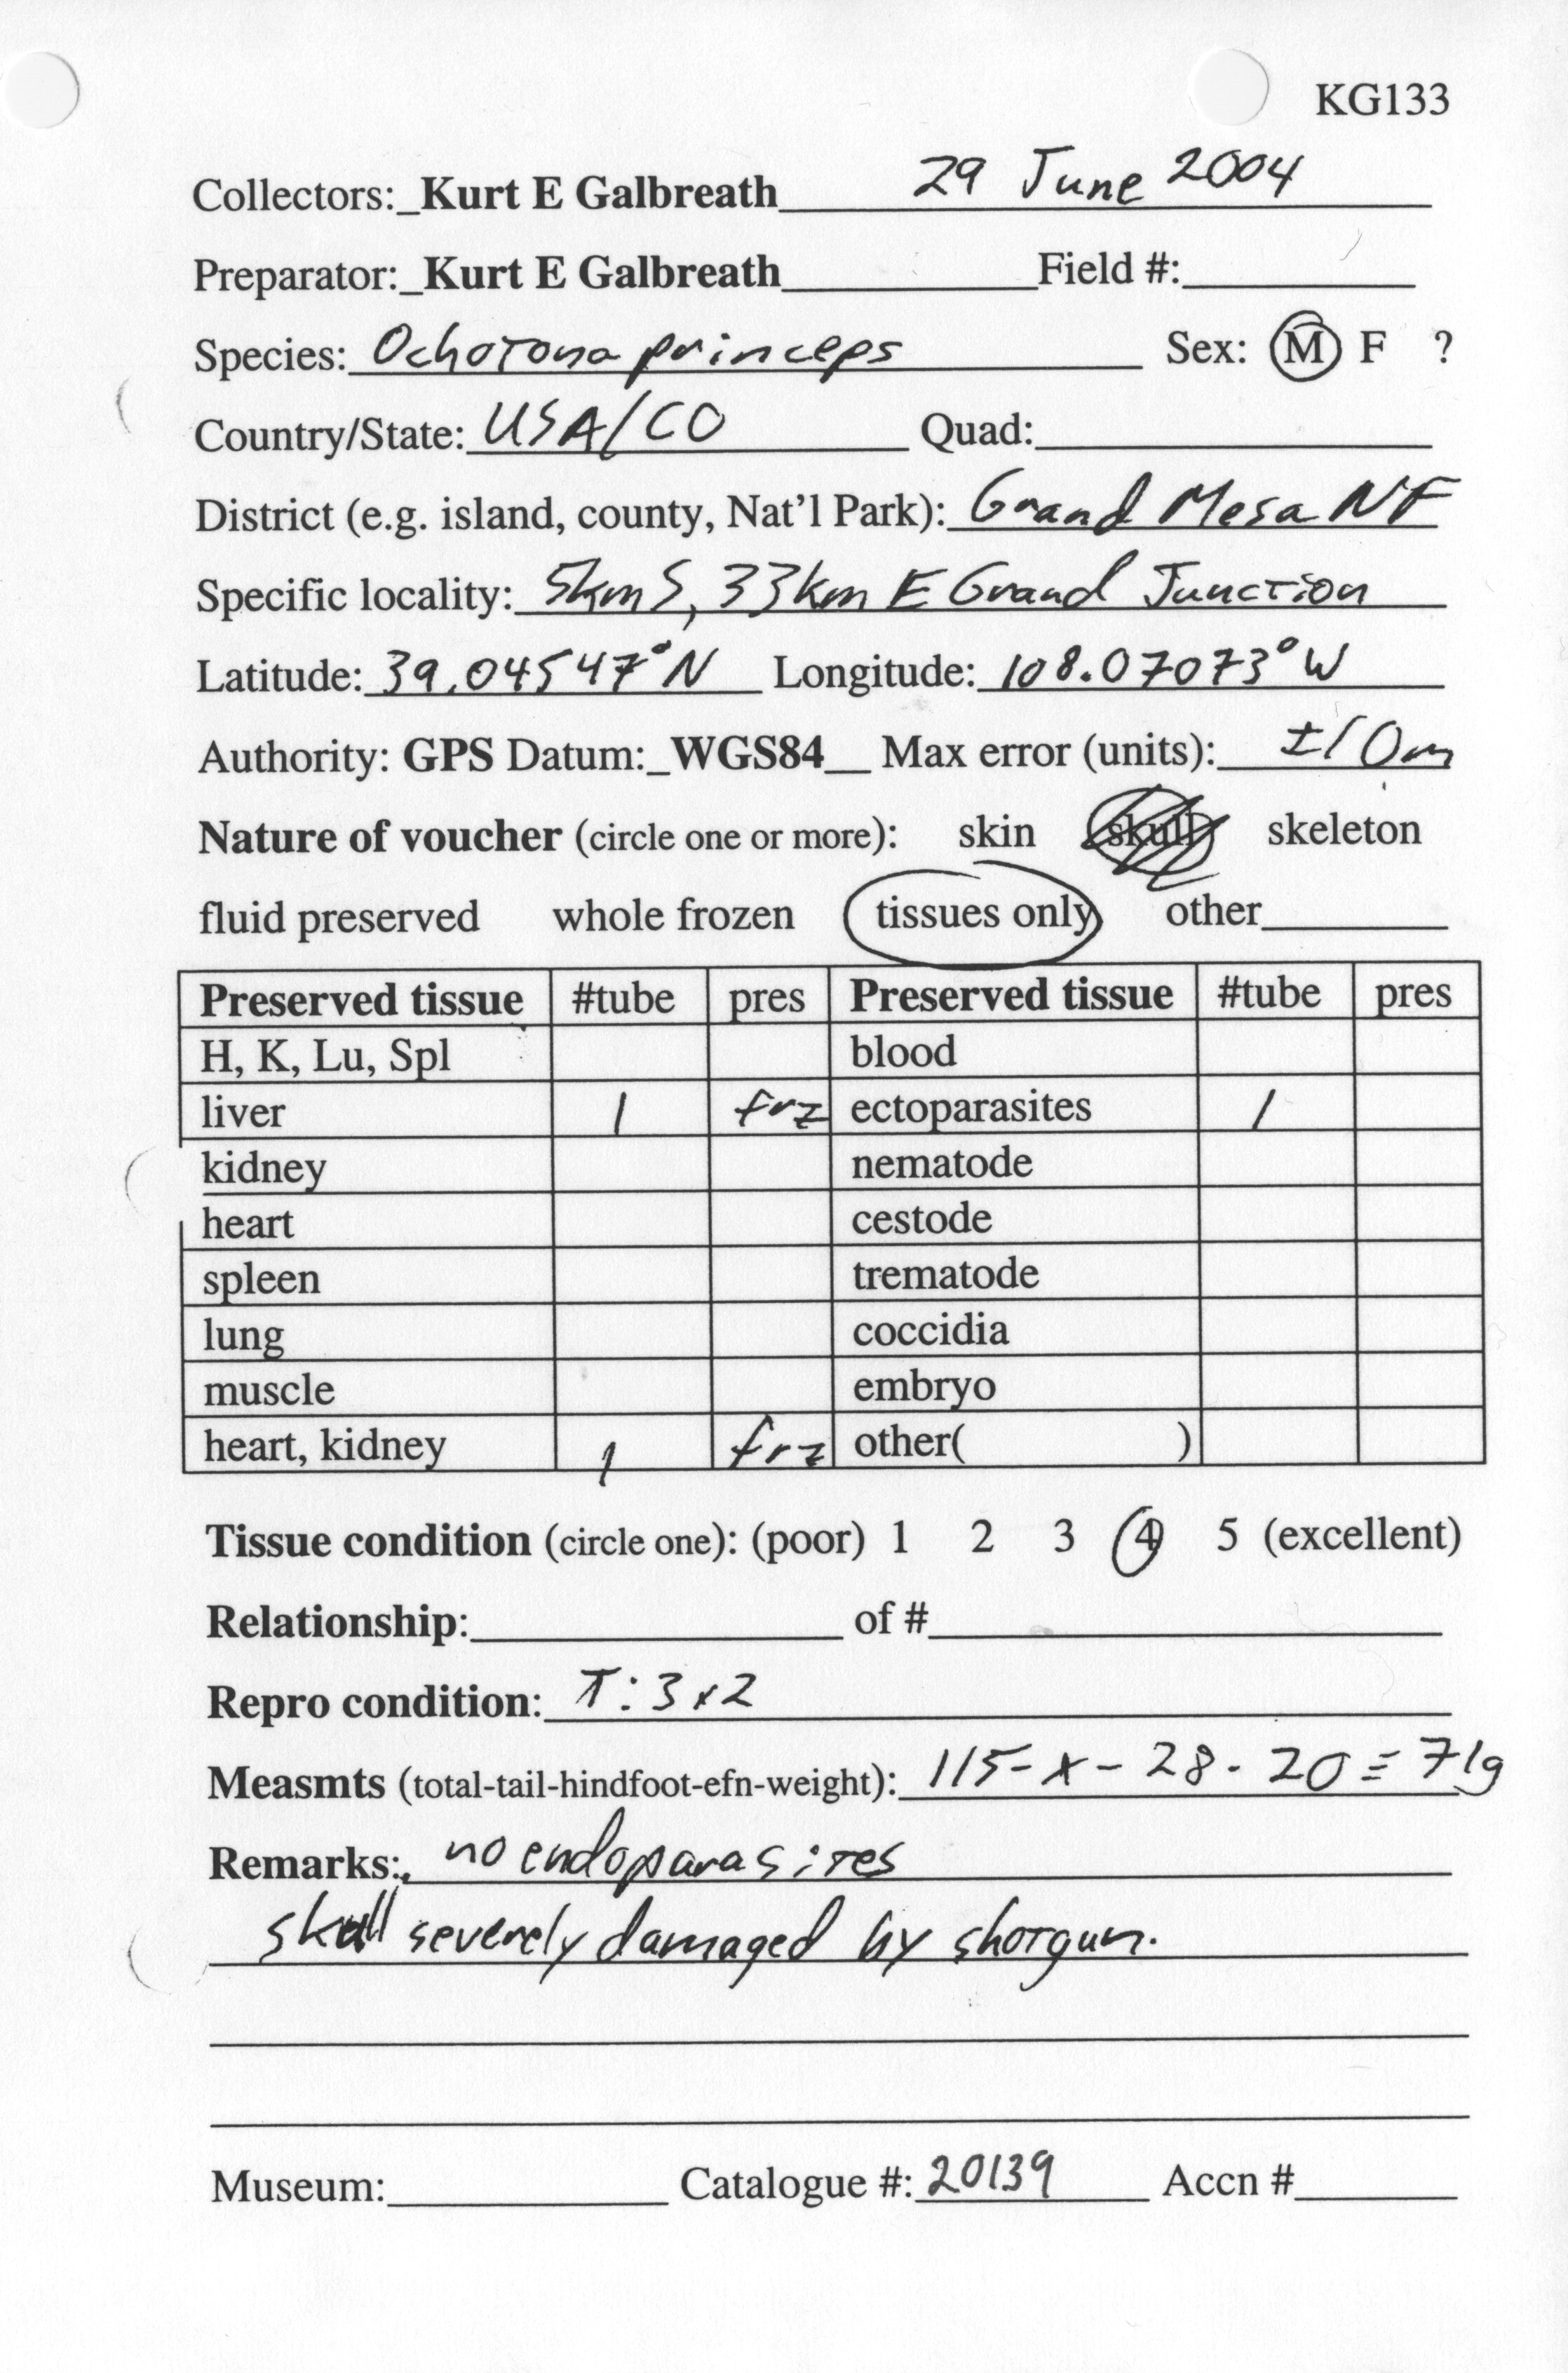 KG133
Collectors:_Kurt E Galbreath 29 June 2004
Preparator:_Kurt E Galbreath Field #:
Species: Ochotona princeps Sex: M F ?
Country/State: USA/CO Quad:
District (e.g. island, county, Nat'l Park): Grand Mesa NF
Specific locality: 5km S, 33km E Grand Junction
Latitude: 39.04547°N Longitude: 108.07073°W
Authority: GPS Datum:_WGS84__ Max error (units): ±10m
Nature of voucher (circle one or more): skin skull skeleton
fluid preserved whole frozen tissues only other
Preserved tissue #tube pres Preserved tissue #tube pres
H, K, Lu, Spl blood
liver 1 frz ectoparasites 1
kidney nematode
heart cestode
spleen trematode
lung coccidia
muscle embryo
heart, kidney 1 frz other( )
Tissue condition (circle one): (poor) 1 2 3 4 5 (excellent)
Relationship: of #
Repro condition: T: 3x2
Measmts (total-tail-hindfoot-efn-weight): 115-x-28-20≡71g
Remarks: no endoparasites
skull severely damaged by shotgun.
Museum: Catalogue #: 20139 Accn #